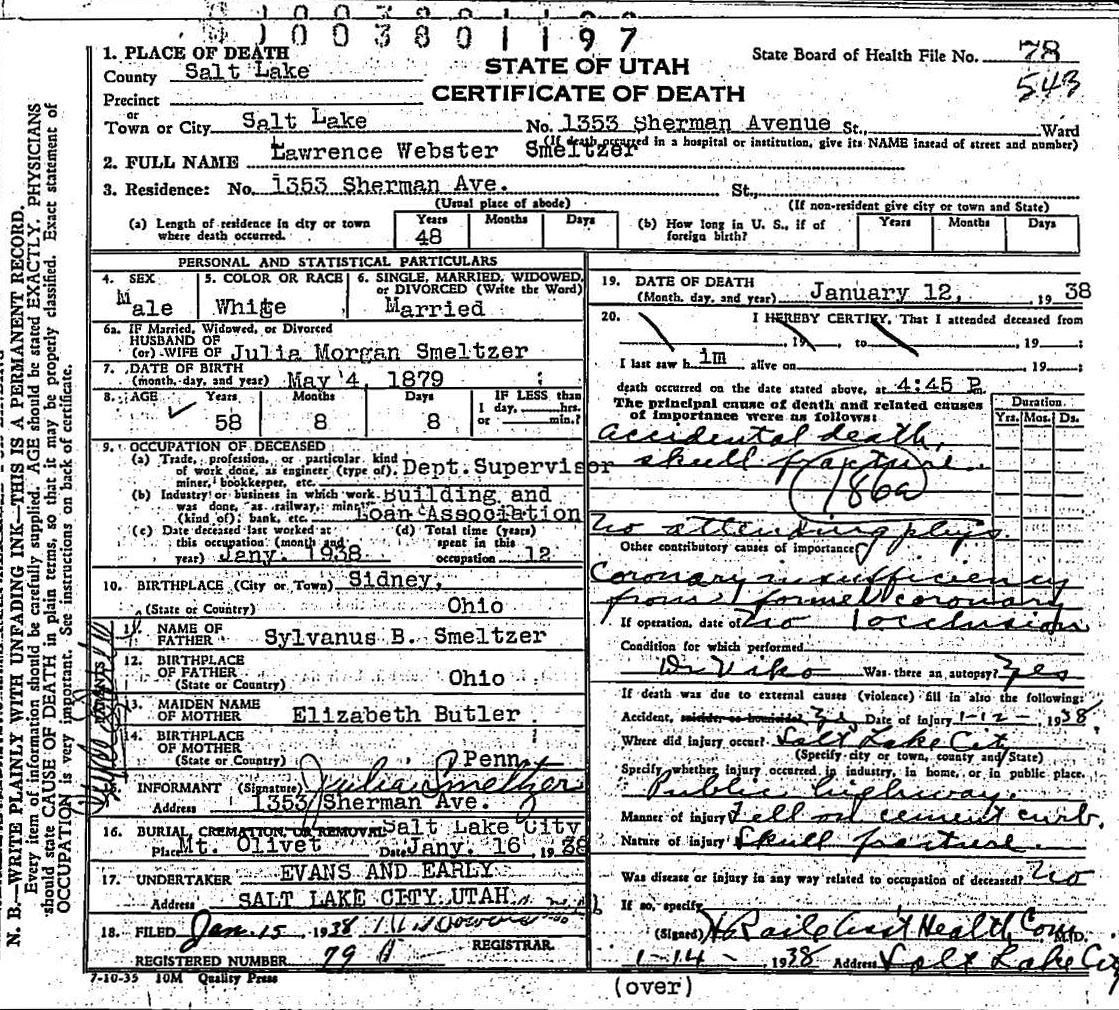 1003801197
1. PLACE OF DEATH
County Salt Lake
STATE OF UTAH
CERTIFICATE OF DEATH
State Board of Health File No. 78
543
Precinct
or
Town or City Salt Lake No. 1353 Sherman Avenue St., Ward
(If death occurred in a hospital or institution, give its NAME instead of street and number)
2. FULL NAME Lawrence Webster Smeltzer
3. Residence: No. 1353 Sherman Ave. St.,
(Usual place of abode) (If non-resident give city or town and State)
(a) Length of residence in city or town where death occurred. Years 48 Months Days
(b) How long in U. S., if of foreign birth? Years Months Days
PERSONAL AND STATISTICAL PARTICULARS
4. SEX Male
5. COLOR OR RACE White
6. SINGLE, MARRIED, WIDOWED, or DIVORCED (Write the Word) Married
6a. IF Married, Widowed, or Divorced
HUSBAND OF
(or) WIFE OF Julia Morgan Smeltzer
7. DATE OF BIRTH
(month, day, and year) May 4, 1879
8. AGE Years 58 Months 8 Days 8 IF LESS than 1 day, hrs. or min.?
9. OCCUPATION OF DECEASED
(a) Trade, profession, or particular kind of work done, as engineer (type of), miner, bookkeeper, etc. Dept. Supervisor
(b) Industry or business in which work was done, as railway, mine (kind of); bank, etc. Building and Loan Association
(c) Date deceased last worked at this occupation (month and year) Jany. 1938
(d) Total time (years) spent in this occupation 12
10. BIRTHPLACE (City or Town) Sidney,
(State or Country) Ohio
11. NAME OF FATHER Sylvanus B. Smeltzer
12. BIRTHPLACE OF FATHER
(State or Country) Ohio
13. MAIDEN NAME OF MOTHER Elizabeth Butler
14. BIRTHPLACE OF MOTHER
(State or Country) Penn
15. INFORMANT (Signature) Julia Smeltzer
Address 1353 Sherman Ave.
16. BURIAL, CREMATION, OR REMOVAL Salt Lake City
Place Mt. Olivet Date Jany. 16, 1938
17. UNDERTAKER EVANS AND EARLY
Address SALT LAKE CITY, UTAH
18. FILED Jan. 15 1938
REGISTRAR.
REGISTERED NUMBER 79
7-10-35 10M Quality Press
19. DATE OF DEATH
(Month, day, and year) January 12, 1938
20. I HEREBY CERTIFY, That I attended deceased from
19 to 19 ;
I last saw h im alive on 19 ;
death occurred on the date stated above, at 4:45 P.m.
The principal cause of death and related causes of importance were as follows:
Duration
Yrs. Mos. Ds.
Accidental death,
skull fracture.
186a
No attending phys.
Other contributory causes of importance
Coronary insufficiency
from former coronary
occlusion
If operation, date of No
Condition for which performed
Dr Viko Was there an autopsy? Yes
If death was due to external causes (violence) fill in also the following:
Accident, suicide or homicide? Yes, Date of injury 1-12-, 1938
Where did injury occur? Salt Lake City
(Specify city or town, county and State)
Specify whether injury occurred in industry, in home, or in public place.
Public highway.
Manner of injury Fell on cement curb.
Nature of injury Skull fracture.
Was disease or injury in any way related to occupation of deceased? No
If so, specify
(Signed) Asst Health Com. M.D.
1-14- , 1938 Address Salt Lake City
(over)
N. B.—WRITE PLAINLY WITH UNFADING INK—THIS IS A PERMANENT RECORD.
Every item of information should be carefully supplied. AGE should be stated EXACTLY. PHYSICIANS
should state CAUSE OF DEATH in plain terms, so that it may be properly classified. Exact statement of
OCCUPATION is very important. See instructions on back of certificate.